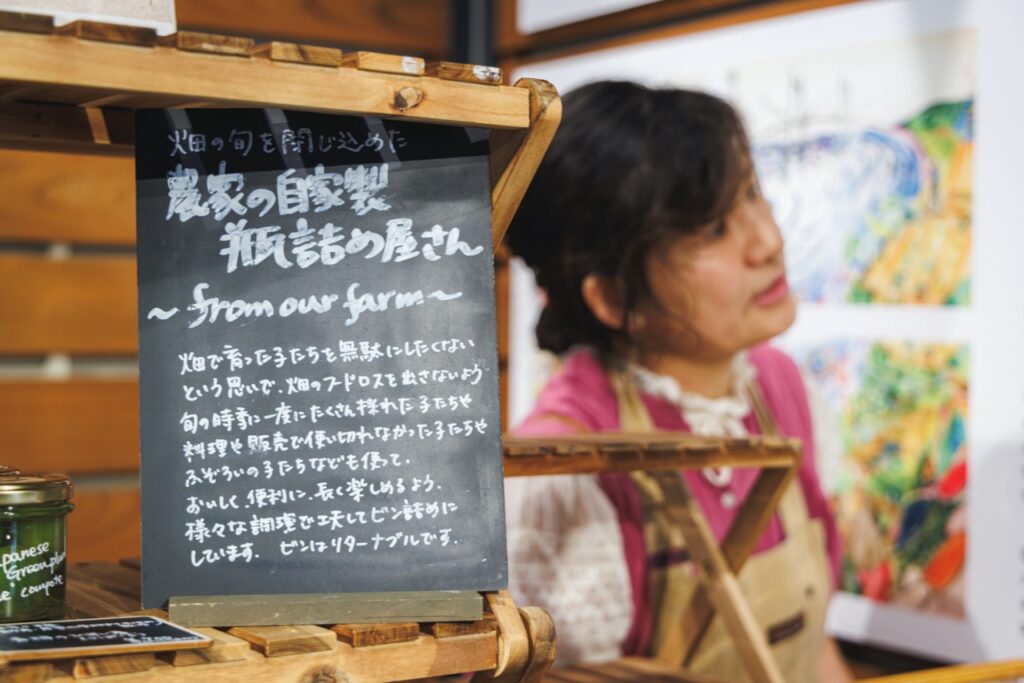 畑の旬を閉じ込めた
農家の自家製
瓶詰め屋さん
～from our farm～
畑で育った子たちを無駄にしたくない
という思いで、畑のフードロスを出さないよう
旬の時季に一度にたくさん採れた子たちや
料理や販売で使い切れなかった子たちや
ふぞろいの子たちなども使って、
おいしく、便利に、長く楽しめるよう、
様々な調理で工夫してビン詰めに
しています. ビンはリターナブルです.
panese
Greenplum
compote